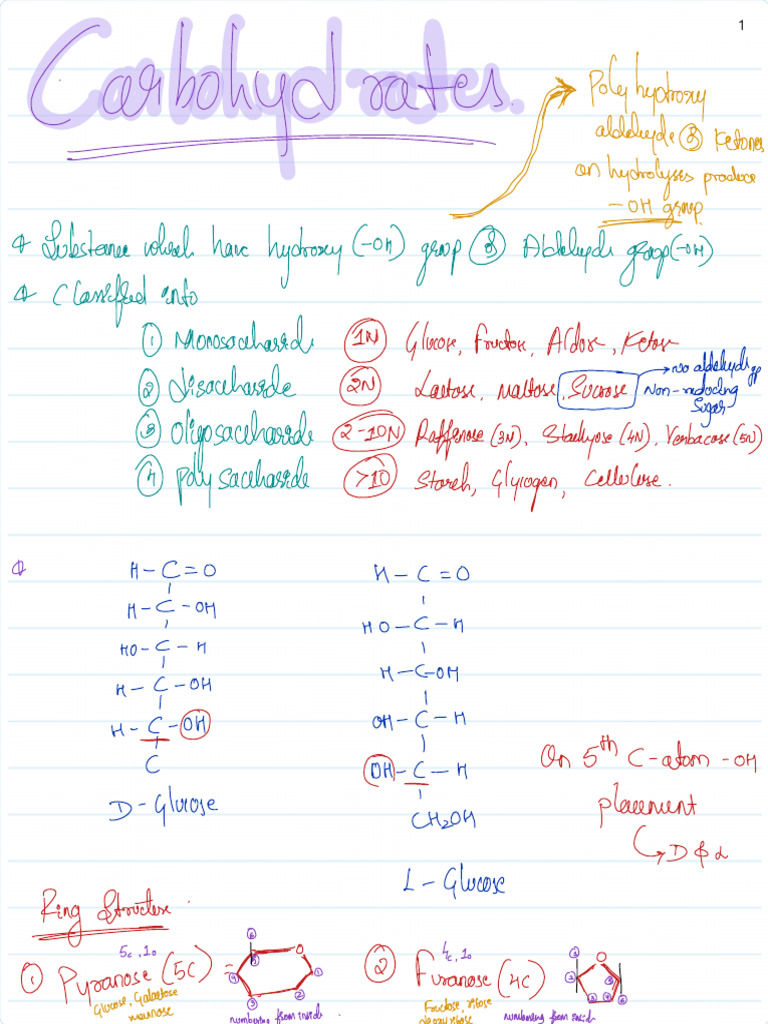 1
Carbohydrates.
Polyhydroxy
aldehyde & Ketones
on hydrolyses produce
-OH group.
* Substance which have hydroxy (-OH) group & Aldehyde group (-OH)
* Classified into
① Monosaccharide 1N Glucose, Fructose, Aldose, Ketose
② Disaccharide 2N Lactose, Maltose, Sucrose → no aldehyde gp
Non-reducing
Sugar
③ Oligosaccharide 2-10N Raffinose (3N), Stachyose (4N), Verbacose (5N)
④ Polysaccharide >10 Starch, Glycogen, Cellulose.
H-C=O
H-C-OH
HO-C-H
H-C-OH
H-C-OH
C
D-Glucose
H-C=O
HO-C-H
H-C-OH
OH-C-H
OH-C-H
CH2OH
L-Glucose
On 5th C-atom -OH
placement
↳ D & L
Ring Structure
5C, 1O
① Pyranose (5C) =
Glucose, Galactose
mannose
6
5
O
4
1
3
2
numbering from inside
4C, 1O
② Furanose (4C)
Fructose, ribose
deoxyribose
O
numbering from inside